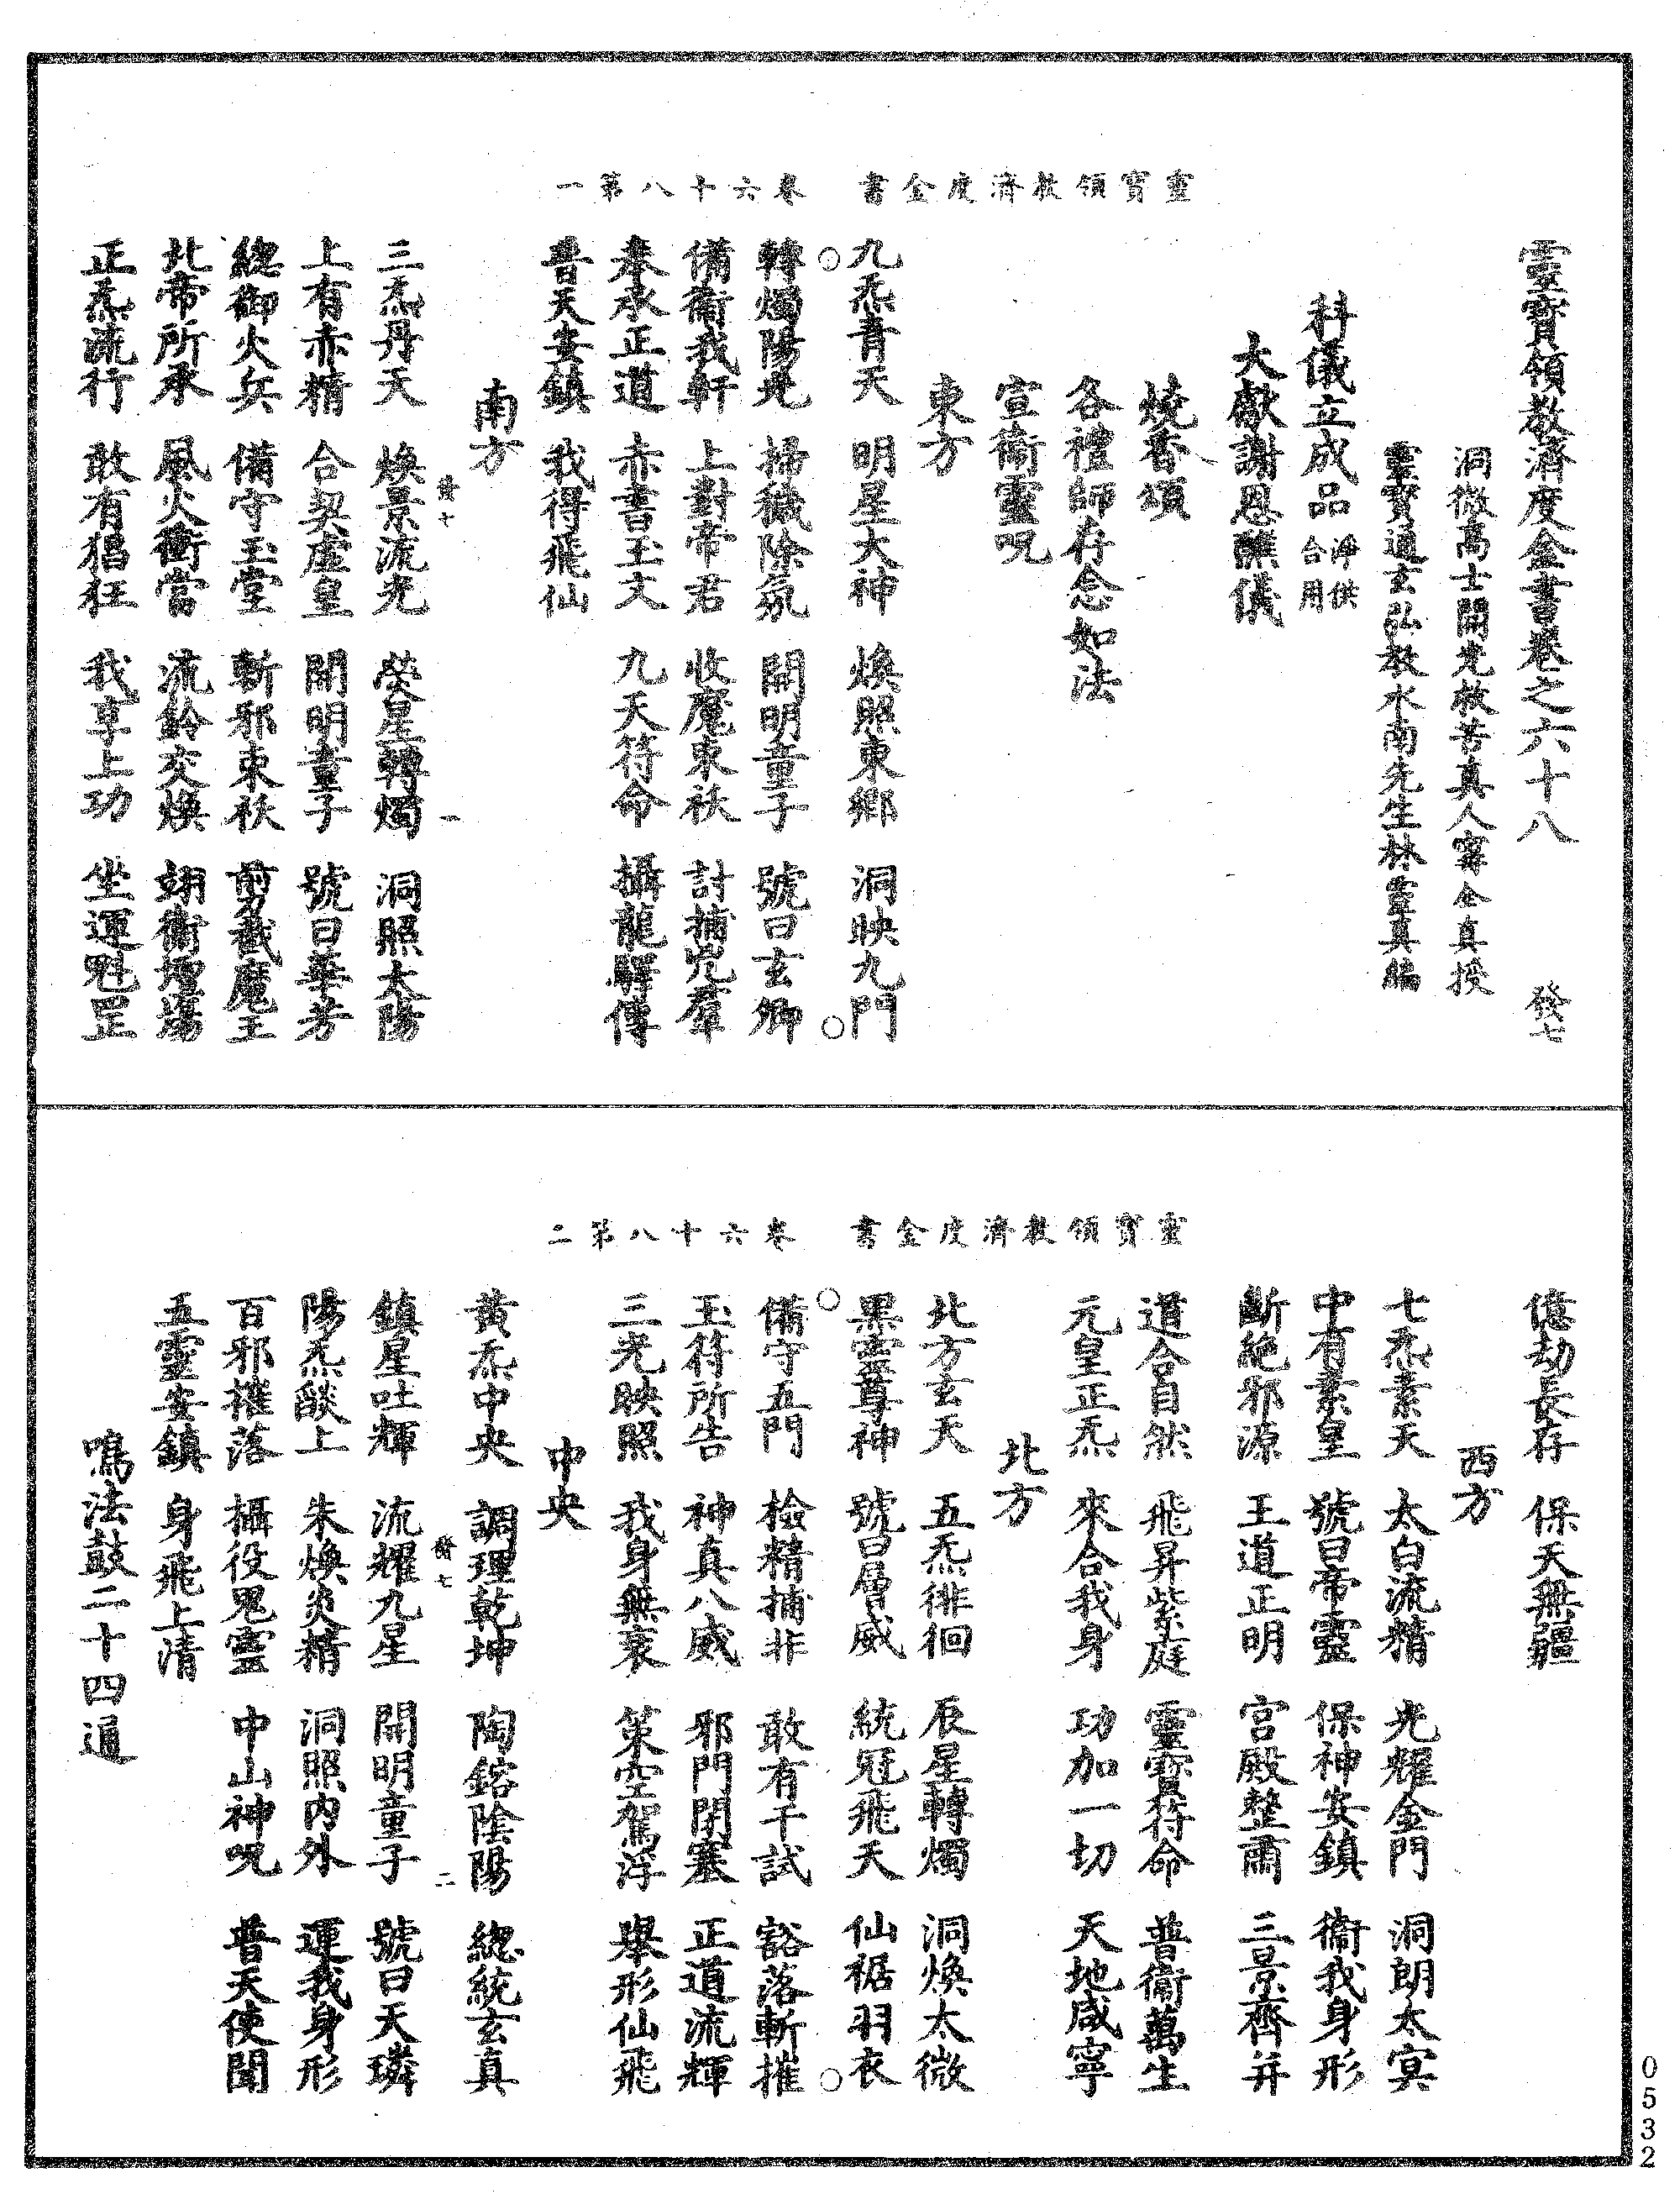 靈寶領教濟度金書　卷六十八第一
靈寶領教濟度金書卷之六十八　發七
洞微高士開光救苦真人甯全真授
靈寶通玄弘教水南先生林靈真編
科儀立成品淨供合用
大獻謝恩醮儀
燒香頌
各禮師存念如法
宣衛靈呪
東方
九炁青天　明星大神　煥照東鄉　洞映九門
轉燭陽光　掃穢除氛　開明童子　號曰玄卿
備衛我軒　上對帝君　收魔束祅　討捕兇羣
奉承正道　赤書玉文　九天符命　攝龍驛傳
普天安鎮　我得飛仙
南方
三炁丹天　煥景流光　熒星轉燭　洞照太陽
上有赤精　合契虛皇　開明童子　號曰華芳
總御火兵　備守玉堂　斬邪束祅　剪截魔王
北帝所承　風火衝當　流鈴交煥　翊衛壇場
正炁流行　敢有猖狂　我享上功　坐運魁罡
靈寶領教濟度金書　卷六十八第二
億劫長存　保天無疆
西方
七炁素天　太白流精　光耀金門　洞朗太冥
中有素皇　號曰帝靈　保神安鎮　衞我身形
斷絕邪源　王道正明　宮殿整肅　三景齊并
道合自然　飛昇紫庭　靈寶符命　普衞萬生
元皇正炁　來合我身　功加一切　天地咸寧
北方
北方玄天　五炁徘徊　辰星轉燭　洞煥太微
黑靈尊神　號曰層威　統冠飛天　仙裾羽衣
備守五門　檢精捕非　敢有干試　豁落斬摧
玉符所告　神真八威　邪門閉塞　正道流輝
三光映照　我身無衰　策空駕浮　舉形仙飛
中央
黃炁中央　調理乾坤　陶鎔陰陽　總統玄真
鎮星吐輝　流耀九星　開明童子　號曰天璘
陽炁燄上　朱煥炎精　洞照內外　運我身形
百邪摧落　攝役鬼靈　中山神呪　普天使聞
五靈安鎮　身飛上清
鳴法鼓二十四通
0532